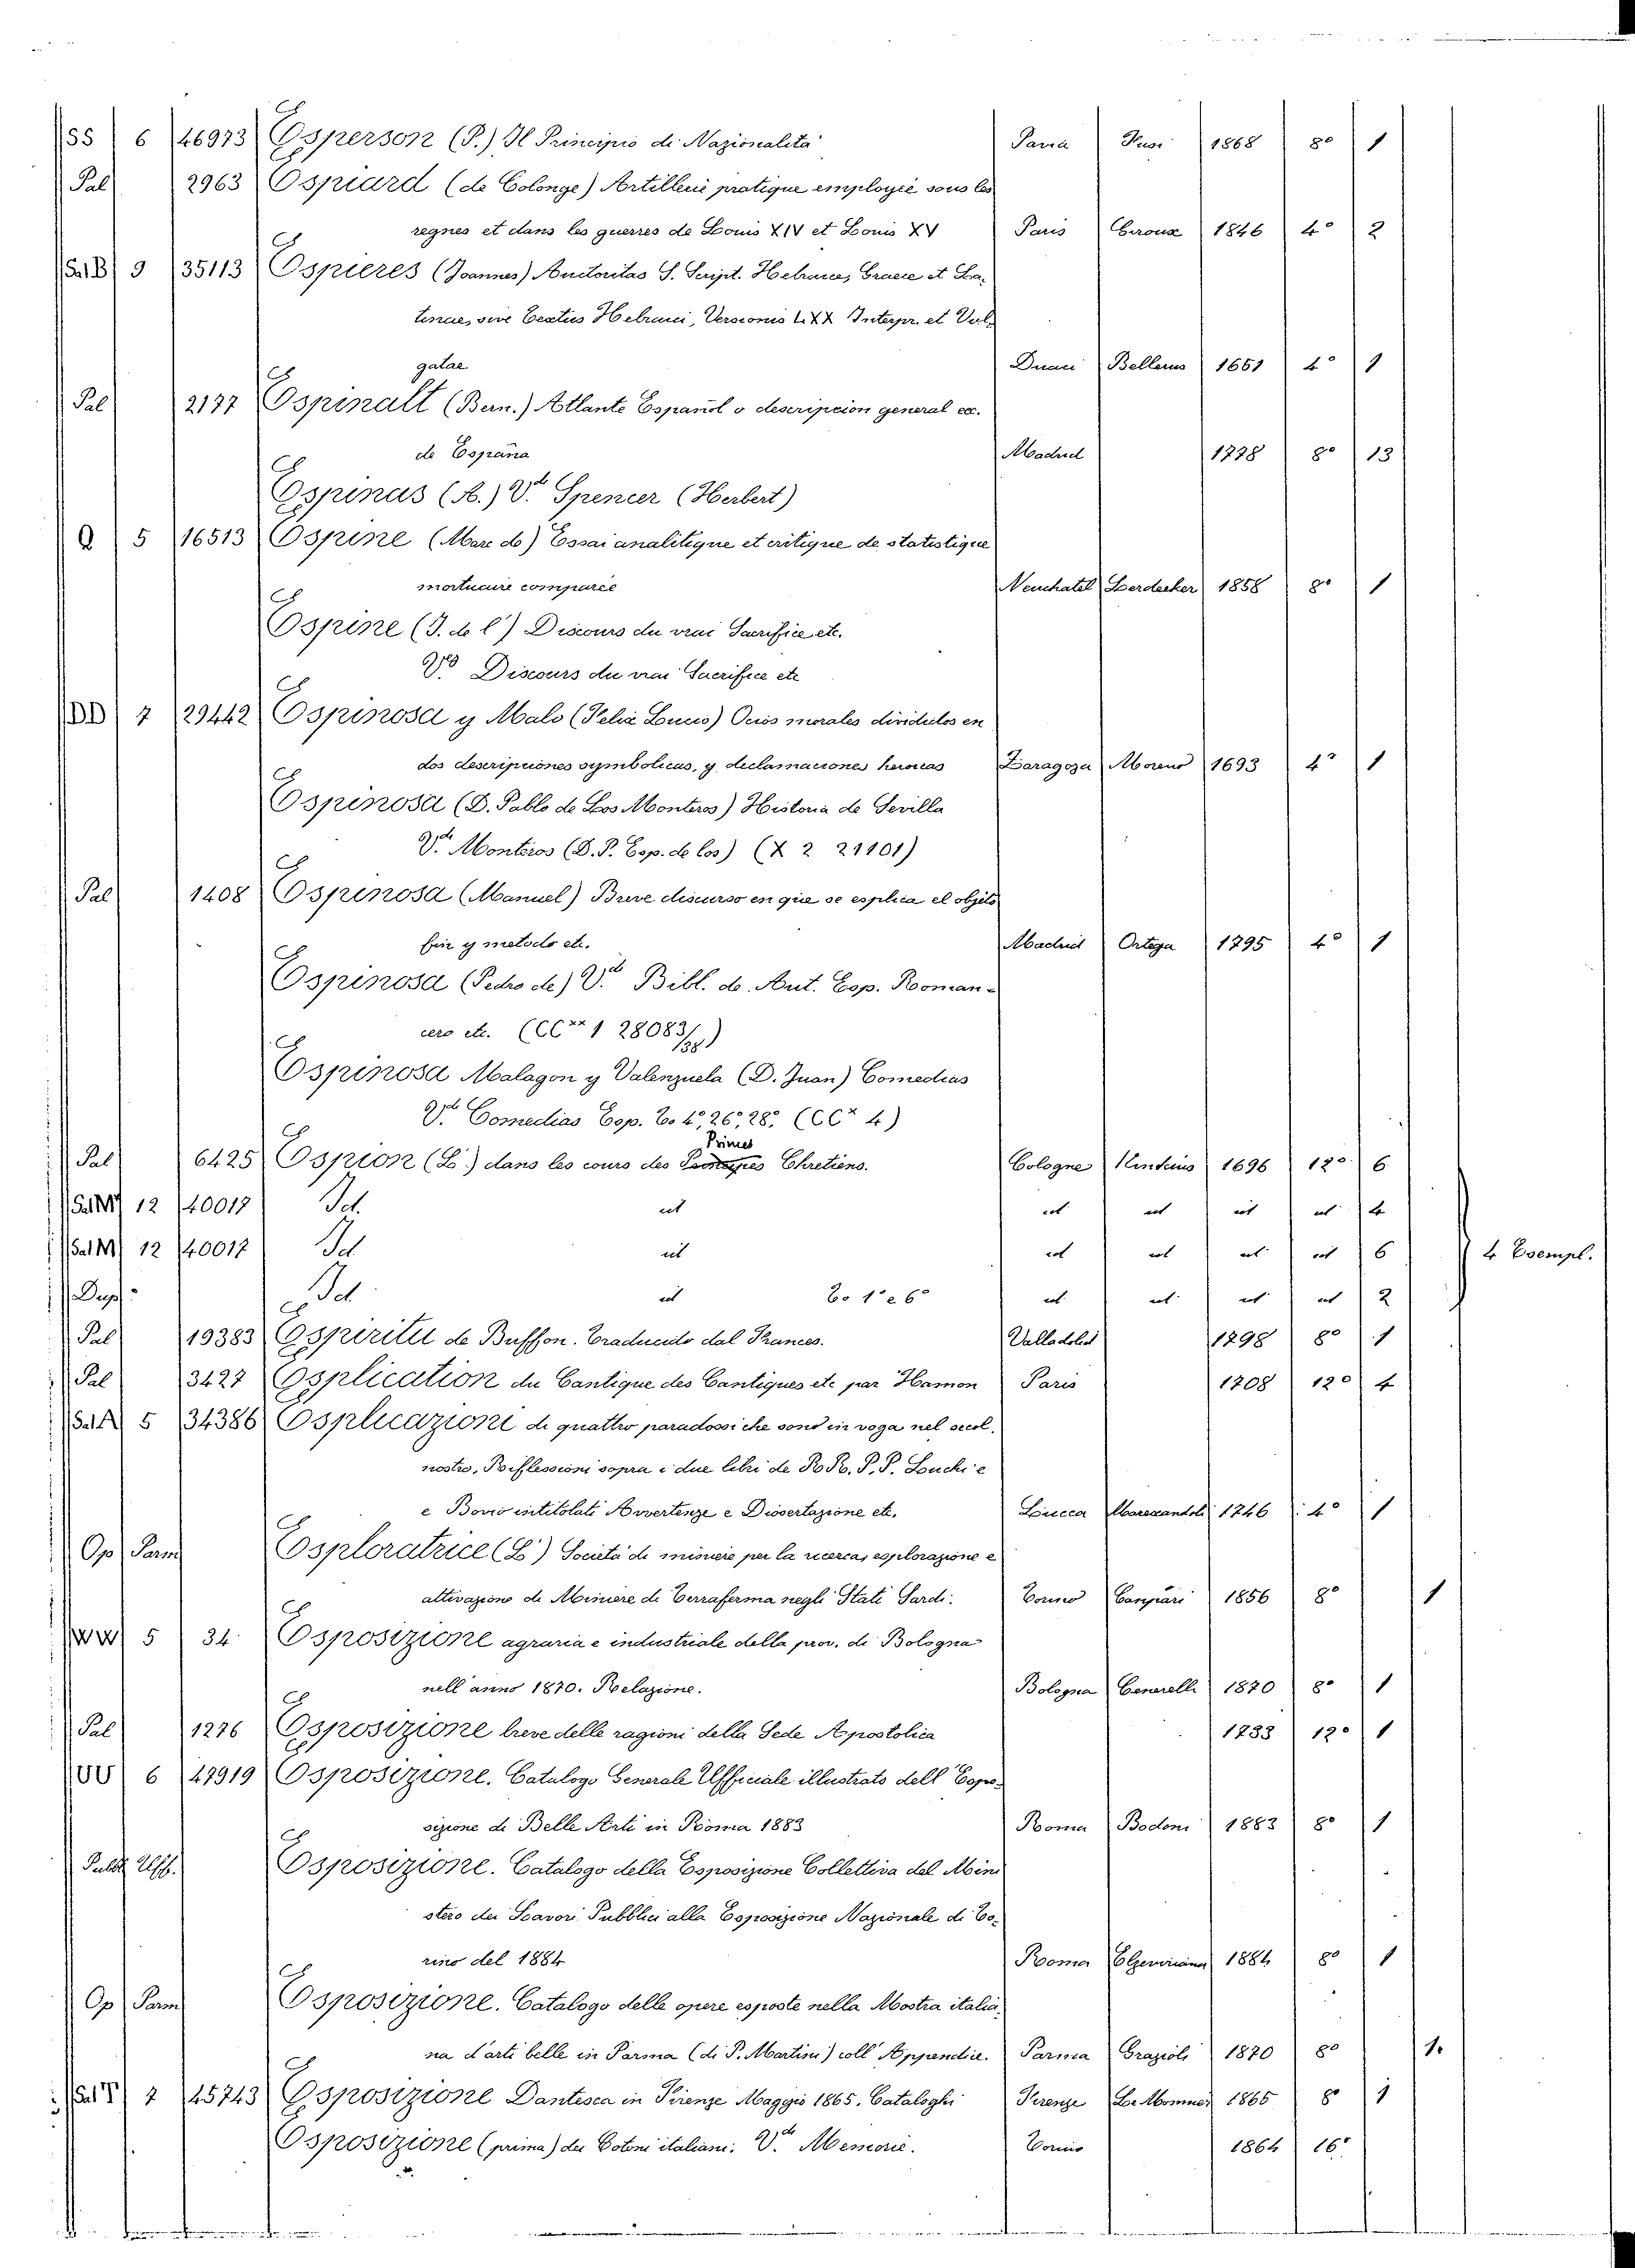 SS 6 46973 Esperson (P.) Il Principio di Nazionalità Pavia Fusi 1868 8º 1
Pal 2963 Espiard (de Colonge) Artillerie pratique employée sous les
regnes et dans les guerres de Louis XIV et Louis XV Paris 1846 4º 2
Sal B 9 35113 Espieres (Joannes) Auctoritas S. Script. Hebraice, Graece et La-
tinae, sive textus Hebraici, Versionis LXX Interpr. et Vul-
gatae Duaci Bellerus 1651 4º 1
Pal 2177 Espinalt (Bern.) Atlante Español o descripcion general ec.
de España Madrid 1778 8º 13
Espinas (A.) V.di Spencer (Herbert)
Q 5 16513 Espine (Marc d') Essai analitique et critique de statistique
mortuaire comparée Neuchatel Leidecker 1858 8º 1
Espine (J. de l') Discours du vrai Sacrifice etc.
V.di Discours du vrai Sacrifice etc
DD 7 29442 Espinosa y Malo (Felix Lucio) Ocios morales divididos en
dos descripciones symbolicas, y declamaciones heroicas Zaragoza Moreno 1693 4º 1
Espinosa (D. Pablo de Los Monteros) Historia de Sevilla
V.di Monteros (D. P. Esp. de los) (X 2 21101)
Pal 1408 Espinosa (Manuel) Breve discurso en que se esplica el objeto
fin y metodo etc. Madrid Ortega 1795 4º 1
Espinosa (Pedro de) V.di Bibl. de Aut. Esp. Roman-
cero etc. (CC** 1 28083/38)
Espinosa Malagon y Valenzuela (D. Juan) Comedias
V.di Comedias Esp. To 4º, 26º, 28º. (CCx 4)
Pal 6425 Espion (L') dans les cours des Princes Chretiens. Cologne Kinkius 1696 12º 6
Sal M 12 40017 Id. ut ut ut ut ut 4
Sal M 12 40017 Id ut ut ut ut ut 6 4 Esempl.
Dup. Id ut To 1º e 6º ut ut ut ut 2
Pal 19383 Espiritu de Buffon. Traducido dal Frances. Valladolid 1798 8º 1
Pal 3427 Esplication du Cantique des Cantiques etc par Hamon Paris 1708 12º 4
Sal A 5 34386 Esplicazione di quattro paradossi che sono in voga nel secol.
nostro, Riflessioni sopra i due libri de R. R. P. P. Lucchi e
e Bovio intitolati Avvertenze e Dissertazione etc. Lucca Marescandoli 1746 4º 1
Op Parm Esploratrice (L') Società di miniere per la ricerca, esplorazione e
attivazione di Miniere di Terraferma negli Stati Sardi. Torino Canfari 1856 8º 1
WW 5 34 Esposizione agraria e industriale della prov. di Bologna
nell'anno 1870. Relazione. Bologna Generelli 1870 8º 1
Pal 1276 Esposizione breve delle ragioni della Sede Apostolica 1733 12º 1
UU 6 47919 Esposizione. Catalogo Generale Ufficiale illustrato dell'Espo-
sizione di Belle Arti in Roma 1883 Roma Bodoni 1883 8º 1
Pubbl. Uff. Esposizione. Catalogo della Esposizione Collettiva del Mini
stero dei Lavori Pubblici alla Esposizione Nazionale di To-
rino del 1884 Roma Elzeviriana 1884 8º 1
Op Parm Esposizione. Catalogo delle opere esposte nella Mostra italia-
na d'arti belle in Parma (di P. Martini) coll'Appendice. Parma Grazioli 1870 8º 1.
Sal T 7 45743 Esposizione Dantesca in Firenze Maggio 1865. Cataloghi Firenze Le Monnier 1865 8º 1
Esposizione (prima) dei Cotoni italiani. V.di Memorie. Torino 1864 16º